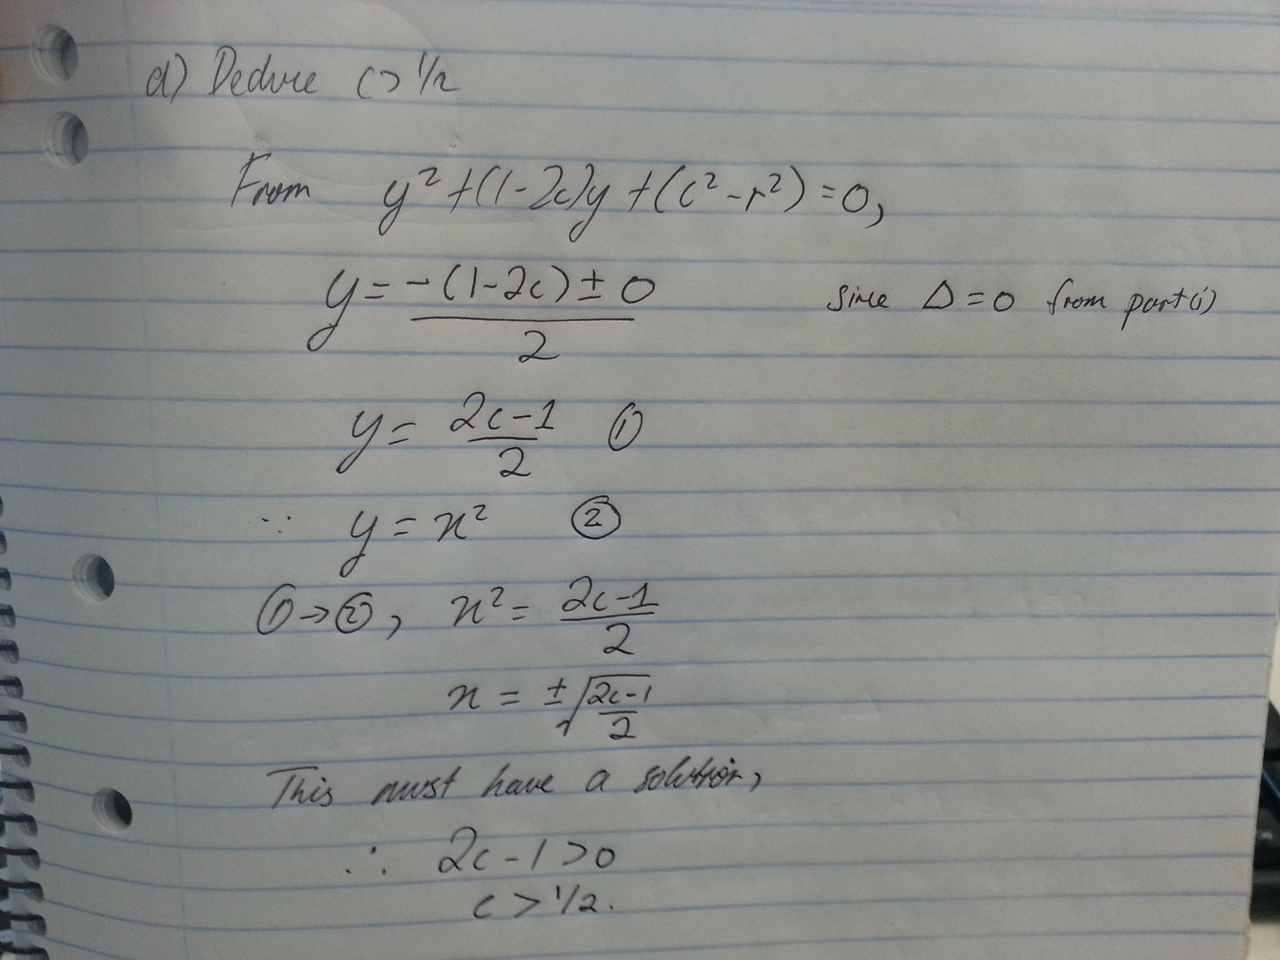 a) Deduce c > 1/2
From y² + (1-2c)y + (c² - r²) = 0,
y = -(1-2c) ± 0 / 2 since Δ = 0 from part (i)
y = 2c-1 / 2 ①
∵ y = x² ②
① → ②, x² = 2c-1 / 2
x = ± √(2c-1 / 2)
This must have a solution,
∴ 2c - 1 > 0
c > 1/2.